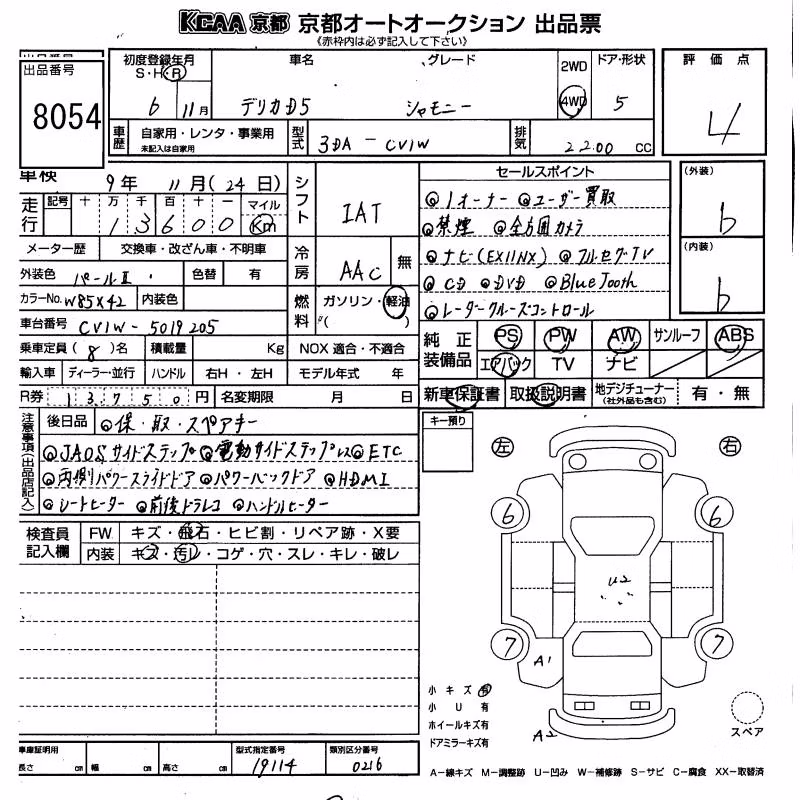 KCAA 京都 京都オートオークション 出品票
《赤枠内は必ず記入して下さい》
出品番号
8054
初度登録年月 車名 グレード 2WD ドア・形状 評価点
S・H・R 6 11月 デリカD5 シャモニー 4WD 5 4
車歴 自家用・レンタ・事業用 未記入は自家用 型式 3DA-CV1W 排気 2200 CC
車検 9年 11月(24日) シフト IAT
走行 記号 十 万 千 百 十 一 マイル
13600 Km
メーター歴 交換車・改ざん車・不明車
冷房 AAC 無
外装色 パールII 色替 有
カラーNo. W85X42 内装色
燃料 ガソリン・軽油
( )
車台番号 CV1W-5019205
乗車定員 (8)名 積載量 Kg NOX 適合・不適合
輸入車 ディーラー・並行 ハンドル 右H・左H モデル年式 年
R券 13750円 名変期限 月 日
セールスポイント
◎1オーナー ◎ユーザー買取
◎禁煙 ◎全方囲カメラ
◎ナビ(EX11NX) ◎フルセグTV
◎CD ◎DVD ◎BlueTooth
◎レーダークルーズコントロール
(外装)
b
(内装)
b
純正装備品 PS PW AW サンルーフ ABS
エアバック TV ナビ
新車保証書 取扱説明書 地デジチューナー (社外品も含む) 有・無
注意事項(出品店記入) 後日品 ◎保・取・スペアキー
◎JAOSサイドステップ ◎電動サイドステップレス ◎ETC
◎両側パワースライドドア ◎パワーバックドア ◎HDMI
◎シートヒーター ◎前後ドラレコ ◎ハンドルヒーター
キー預り
左 右
検査員記入欄 FW キズ・飛石・ヒビ割・リペア跡・X要
内装 キズ・汚レ・コゲ・穴・スレ・キレ・破レ
6 6
U2
7 7
A1
A2
小キズ有
小U有
ホイールキズ有
ドアミラーキズ有
スペア
車庫証明用 型式指定番号 類別区分番号
長さ cm 幅 cm 高さ cm 19114 0216
A-線キズ M-調整跡 U-凹み W-補修跡 S-サビ C-腐食 XX-取替済